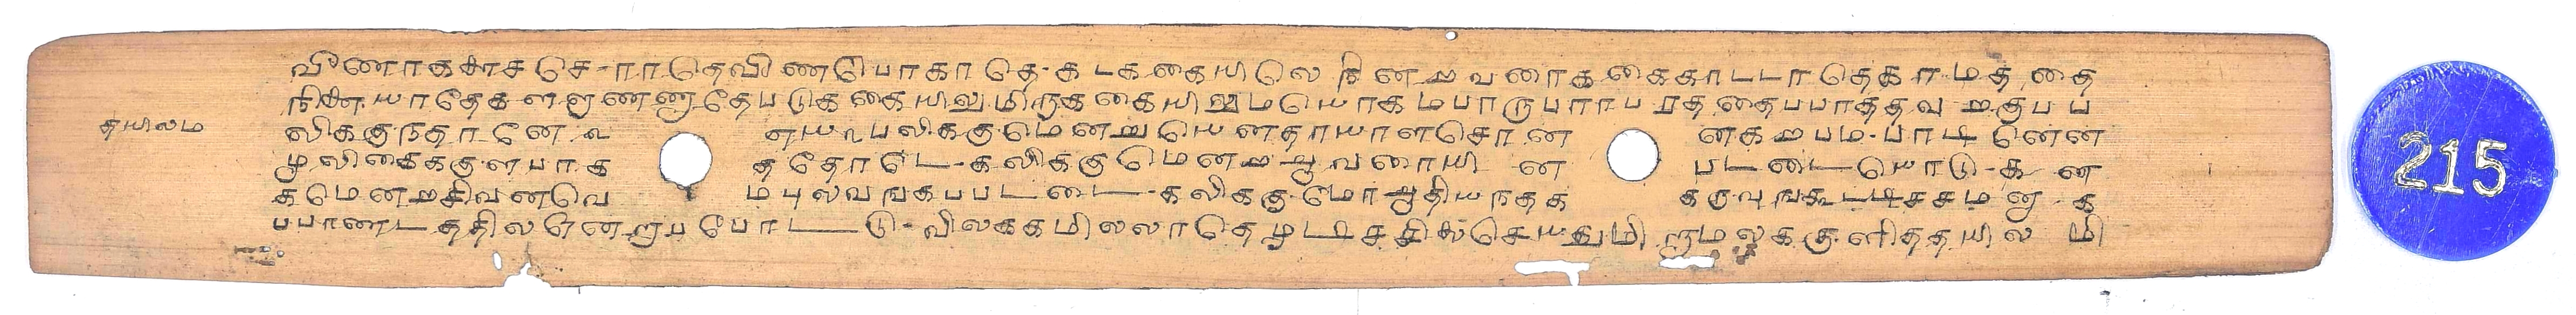 வீணாகககாசசெராாதெவிணபொகாதெகடககையிலெ நினறவனைககைகாடடாதெகாமததை
நினையாதேகளளுணணுதேபடுககையிலுமிருககையிலுமயொகமபாருபாராபரததைபபாததவறகுபப
தயிலம
லிககுநதானே உ ளயஉபலிககுமெனறுயெனதாயாளசொன னகறபமபாடினென
மூலிகைககுளபாக ததோடெகலிககுமெனறறவணாயின படடையொடுகன
கமெனறசிவனவெ மபுலவஙகபபடடைகலிககுமோர்ஆதியநதக கருவுஙகூடடிசசமனுக
பபாணடததிலஎனறுபபோடடுவிலககமிலலாதெமூடிசசிலசெயதுமிருமலககுளிததயிலமி
215